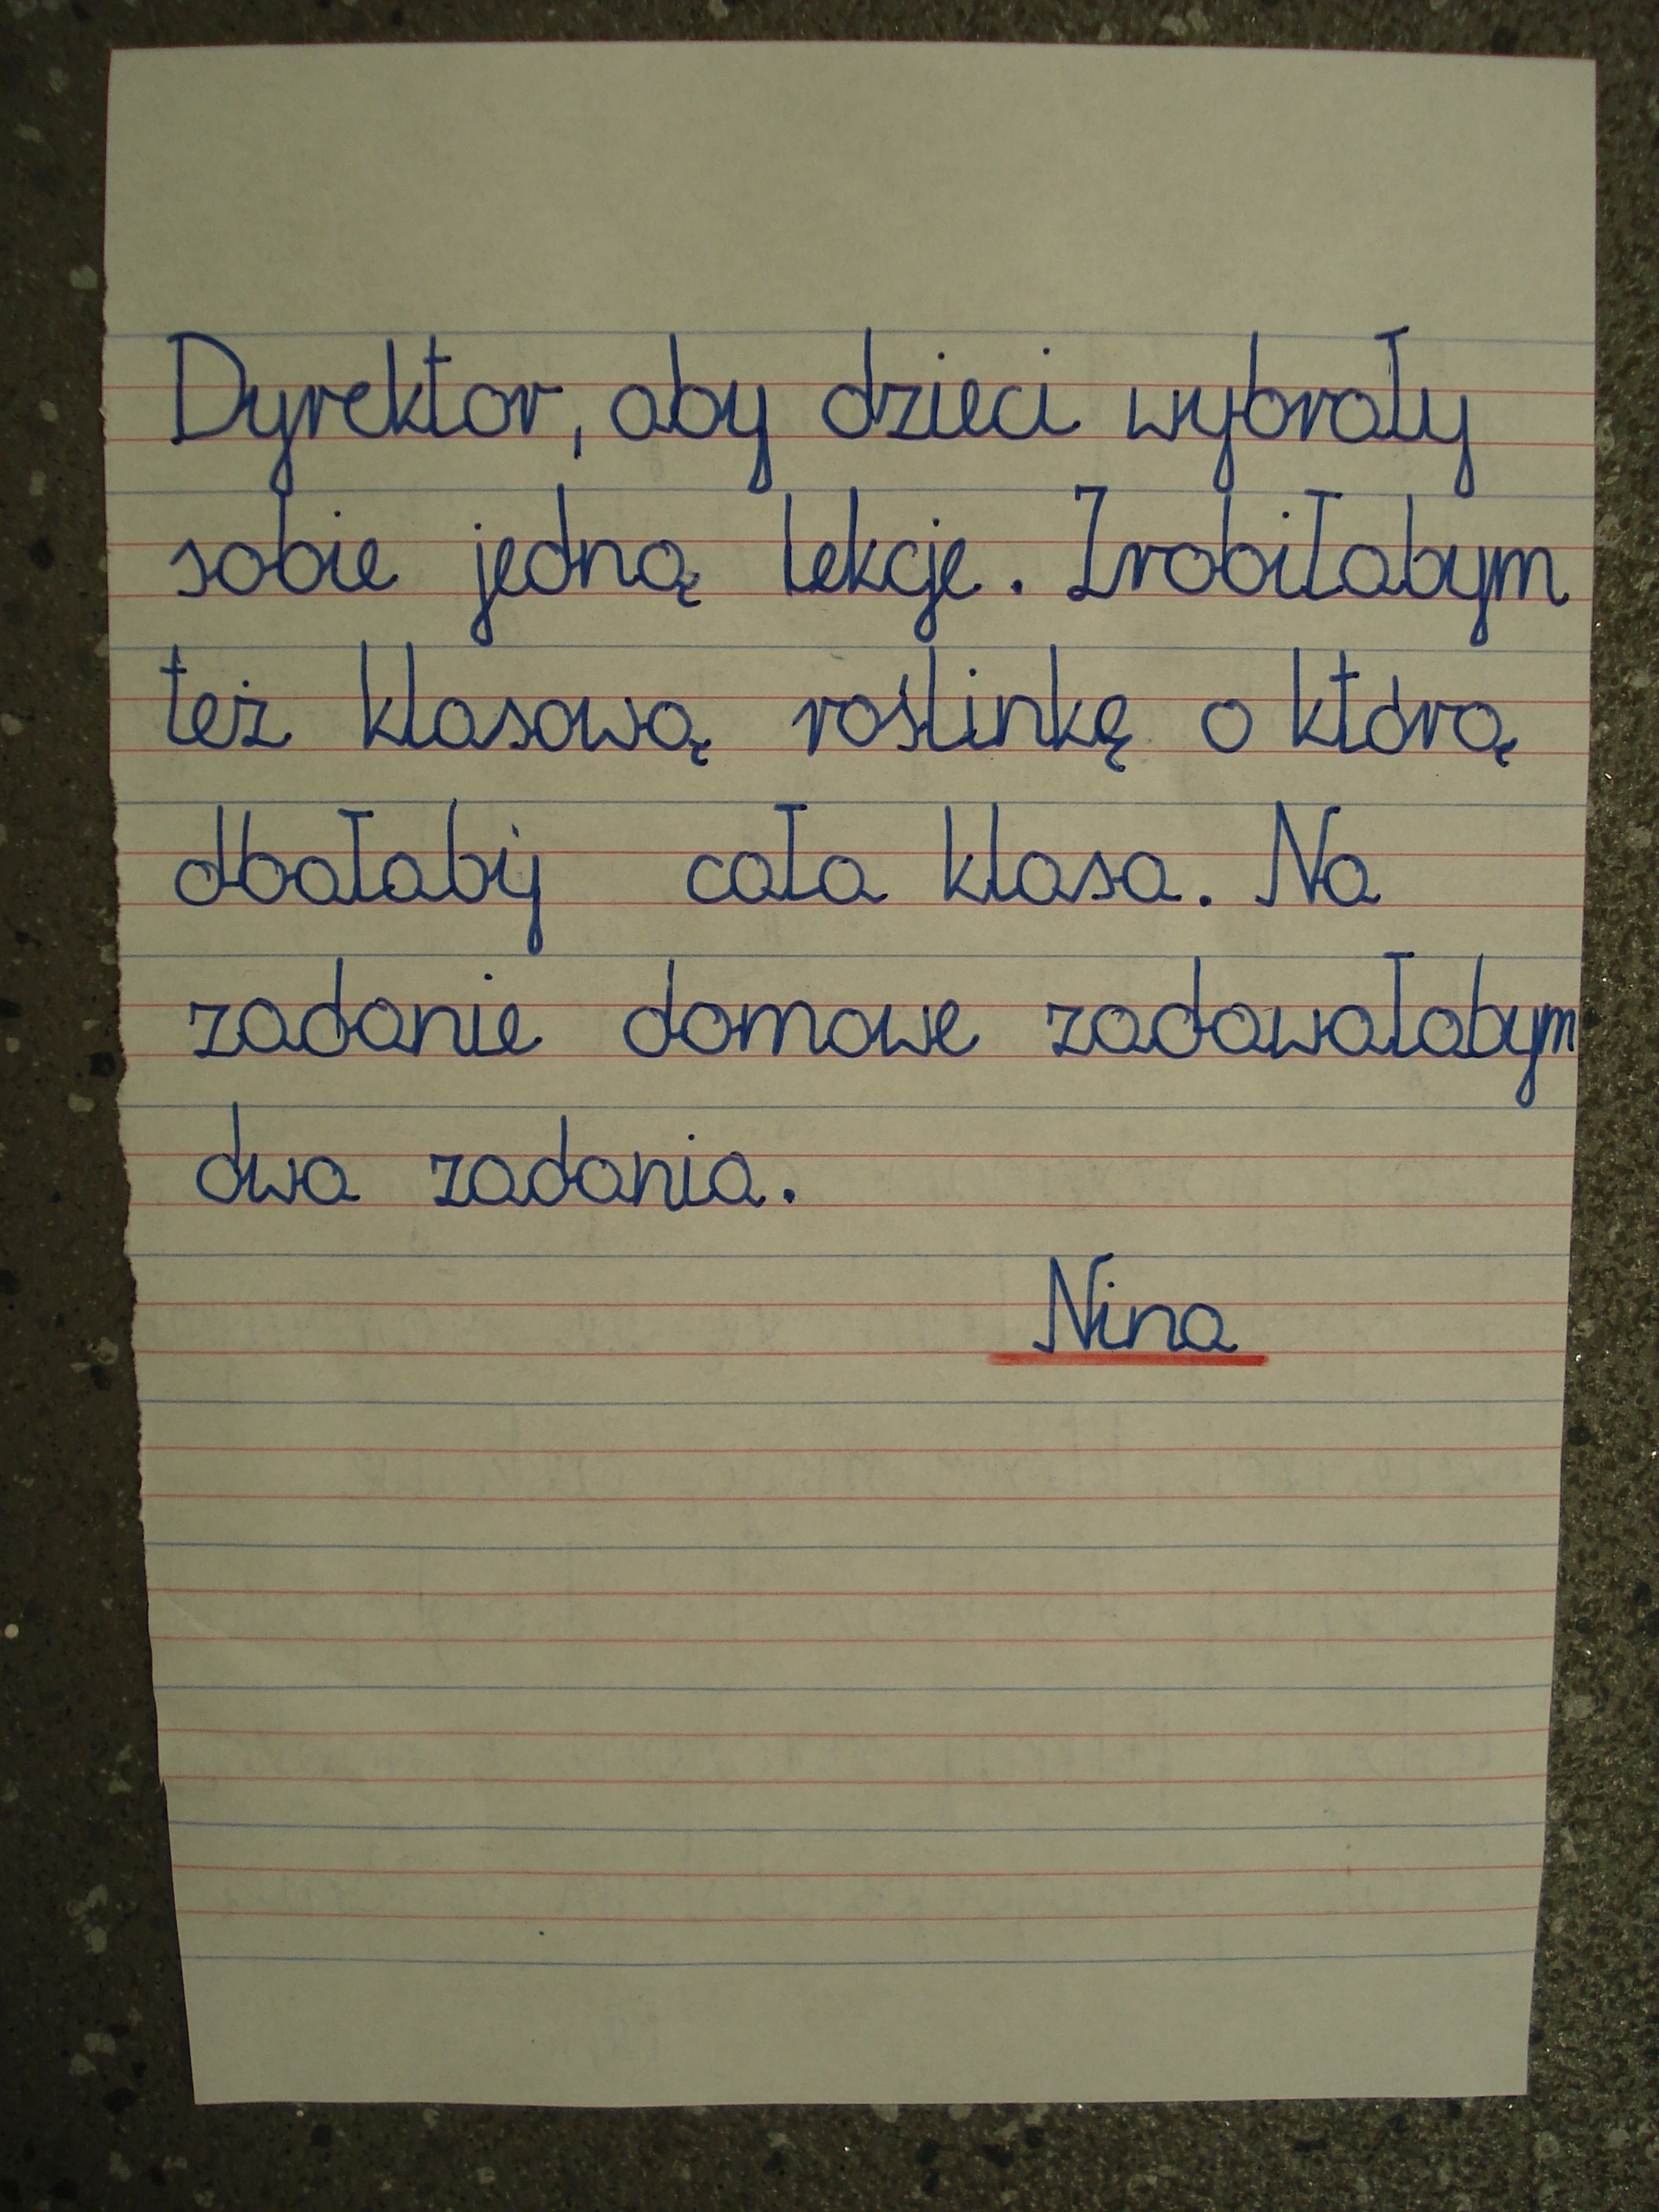 Dyrektor, aby dzieci wybrały
sobie jedną lekcje. Zrobiłabym
też klasową roślinkę o którą
dbałaby cała klasa. Na
zadanie domowe zadawałabym
dwa zadania.
Nina